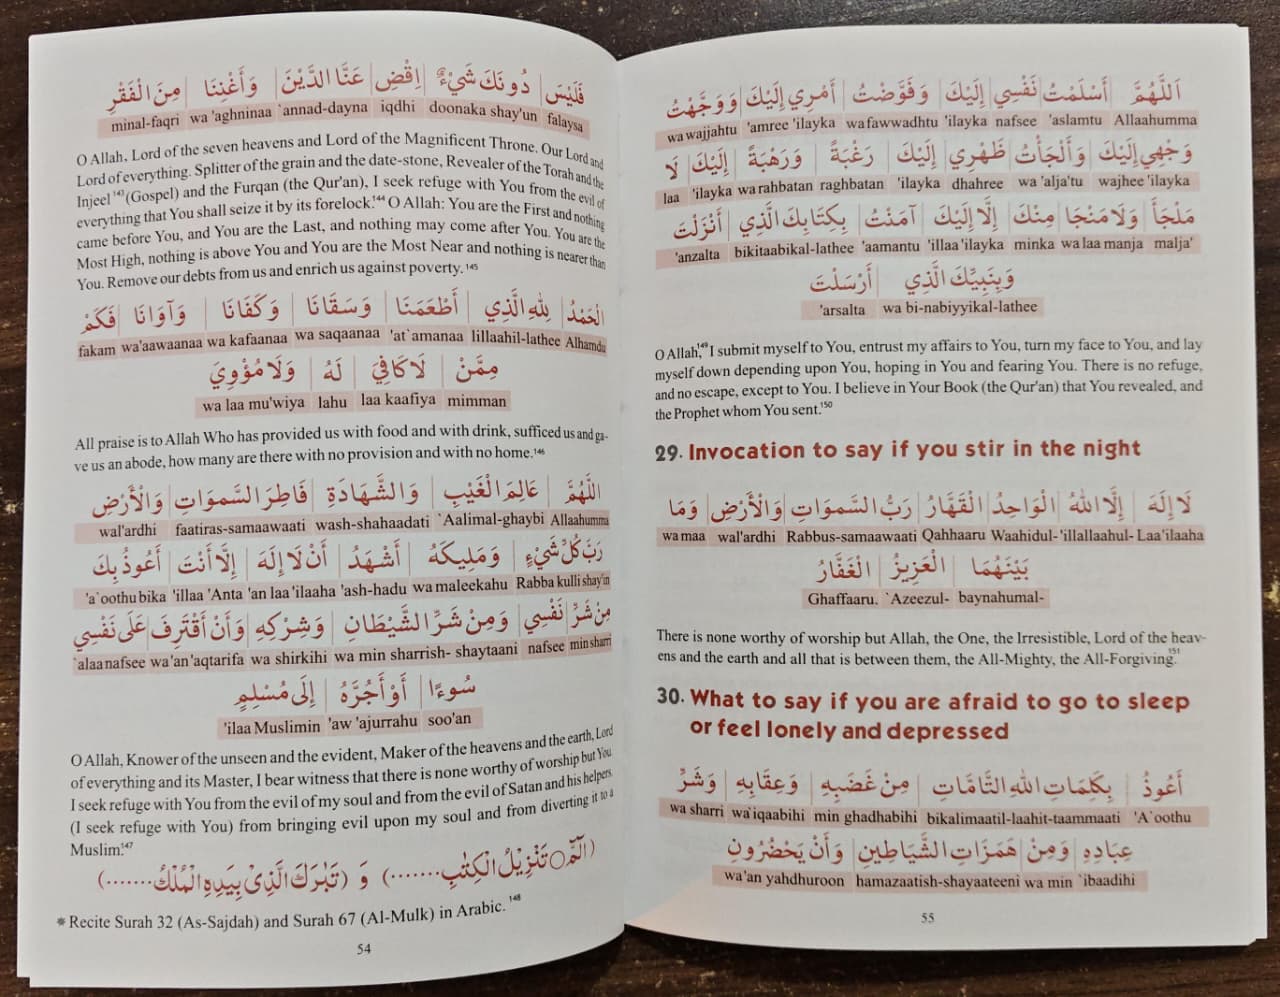 فَلَيْسَ دُونَكَ شَيْءٌ اِقْضِ عَنَّا الدَّيْنَ وَأَغْنِنَا مِنَ الْفَقْرِ
minal-faqri wa 'aghninaa `annad-dayna iqdhi doonaka shay'un falaysa
O Allah, Lord of the seven heavens and Lord of the Magnificent Throne. Our Lord and
Lord of everything. Splitter of the grain and the date-stone, Revealer of the Torah and the
Injeel 143 (Gospel) and the Furqan (the Qur'an), I seek refuge with You from the evil of
everything that You shall seize it by its forelock.144 O Allah: You are the First and nothing
came before You, and You are the Last, and nothing may come after You. You are the
Most High, nothing is above You and You are the Most Near and nothing is nearer than
You. Remove our debts from us and enrich us against poverty. 145
الْحَمْدُ لِلهِ الَّذِي أَطْعَمَنَا وَسَقَانَا وَكَفَانَا وَآوَانَا فَكَمْ
fakam wa'aawaanaa wa kafaanaa wa saqaanaa 'at`amanaa lillaahil-lathee Alhamdu
مِمَّنْ لَا كَافِيَ لَهُ وَلَا مُؤْوِيَ
wa laa mu'wiya lahu laa kaafiya mimman
All praise is to Allah Who has provided us with food and with drink, sufficed us and ga-
ve us an abode, how many are there with no provision and with no home.146
اللَّهُمَّ عَالِمَ الْغَيْبِ وَالشَّهَادَةِ فَاطِرَ السَّمَوَاتِ وَالْأَرْضِ
wal'ardhi faatiras-samaawaati wash-shahaadati `Aalimal-ghaybi Allaahumma
رَبَّ كُلِّ شَيْءٍ وَمَلِيكَهُ أَشْهَدُ أَنْ لَا إِلَهَ إِلَّا أَنْتَ أَعُوذُ بِكَ
'a`oothu bika 'illaa 'Anta 'an laa 'ilaaha 'ash-hadu wa maleekahu Rabba kulli shay'in
مِنْ شَرِّ نَفْسِي وَمِنْ شَرِّ الشَّيْطَانِ وَشِرْكِهِ وَأَنْ أَقْتَرِفَ عَلَى نَفْسِي
`alaa nafsee wa'an 'aqtarifa wa shirkihi wa min sharrish- shaytaani nafsee min sharri
سُوءًا أَوْ أَجُرَّهُ إِلَى مُسْلِمٍ
'ilaa Muslimin 'aw 'ajurrahu soo'an
O Allah, Knower of the unseen and the evident, Maker of the heavens and the earth, Lord
of everything and its Master, I bear witness that there is none worthy of worship but You
I seek refuge with You from the evil of my soul and from the evil of Satan and his helpers.
(I seek refuge with You) from bringing evil upon my soul and from diverting it to a
Muslim.147
(الٓمّٓ ○ تَنْزِيْلُ الْكِتٰبِ.......) وَ (تَبٰرَكَ الَّذِيْ بِيَدِهِ الْمُلْكُ.......)
* Recite Surah 32 (As-Sajdah) and Surah 67 (Al-Mulk) in Arabic. 148
54
اَللَّهُمَّ أَسْلَمْتُ نَفْسِي إِلَيْكَ وَفَوَّضْتُ أَمْرِي إِلَيْكَ وَوَجَّهْتُ
wa wajjahtu 'amree 'ilayka wa fawwadhtu 'ilayka nafsee 'aslamtu Allaahumma
وَجْهِي إِلَيْكَ وَأَلْجَأْتُ ظَهْرِي إِلَيْكَ رَغْبَةً وَرَهْبَةً إِلَيْكَ لَا
laa 'ilayka wa rahbatan raghbatan 'ilayka dhahree wa 'alja'tu wajhee 'ilayka
مَلْجَأَ وَلَا مَنْجَا مِنْكَ إِلَّا إِلَيْكَ آمَنْتُ بِكِتَابِكَ الَّذِي أَنْزَلْتَ
'anzalta bikitaabikal-lathee 'aamantu 'illaa 'ilayka minka wa laa manja malja'
وَبِنَبِيِّكَ الَّذِي أَرْسَلْتَ
'arsalta wa bi-nabiyyikal-lathee
O Allah,149 I submit myself to You, entrust my affairs to You, turn my face to You, and lay
myself down depending upon You, hoping in You and fearing You. There is no refuge,
and no escape, except to You. I believe in Your Book (the Qur'an) that You revealed, and
the Prophet whom You sent.150
29. Invocation to say if you stir in the night
لَا إِلَهَ إِلَّا اللهُ الْوَاحِدُ الْقَهَّارُ رَبُّ السَّمَوَاتِ وَالْأَرْضِ وَمَا
wa maa wal'ardhi Rabbus-samaawaati Qahhaaru Waahidul- 'illallaahul- Laa 'ilaaha
بَيْنَهُمَا الْعَزِيزُ الْغَفَّارُ
Ghaffaaru. `Azeezul- baynahumal-
There is none worthy of worship but Allah, the One, the Irresistible, Lord of the heav-
ens and the earth and all that is between them, the All-Mighty, the All-Forgiving.151
30. What to say if you are afraid to go to sleep
or feel lonely and depressed
أَعُوذُ بِكَلِمَاتِ اللهِ التَّامَّاتِ مِنْ غَضَبِهِ وَعِقَابِهِ وَشَرِّ
wa sharri wa`iqaabihi min ghadhabihi bikalimaatil-laahit-taammaati 'A`oothu
عِبَادِهِ وَمِنْ هَمَزَاتِ الشَّيَاطِينِ وَأَنْ يَحْضُرُونِ
wa'an yahdhuroon hamazaatish-shayaateeni wa min `ibaadihi
55